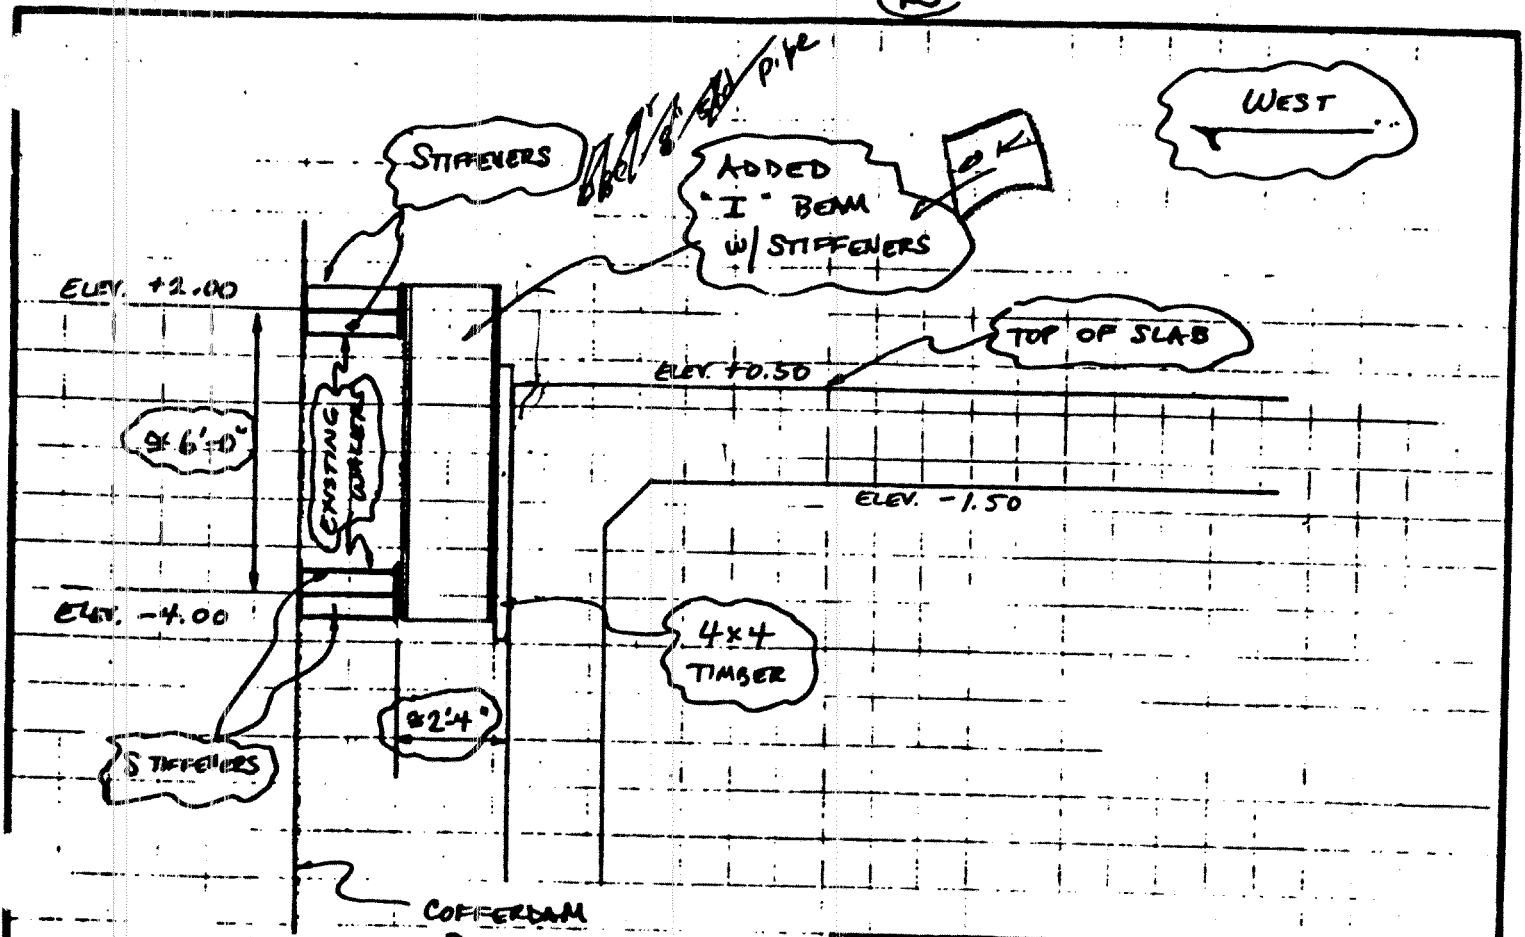 WEST
pipe
STIFFENERS
ADDED
"I" BEAM
W/ STIFFENERS
OK
ELEV. +2.00
TOP OF SLAB
ELEV. +0.50
≅ 6'-0"
EXISTING
WALERS
ELEV. -1.50
ELEV. -4.00
4x4
TIMBER
≅2'-4"
STIFFENERS
COFFERDAM